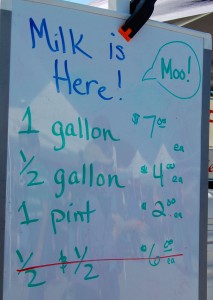 Milk is
Here!
Moo!
1 gallon $7.00 ea
1/2 gallon $4.00 ea
1 pint $2.00 ea
1/2 $ 1/2 $6.00 ea